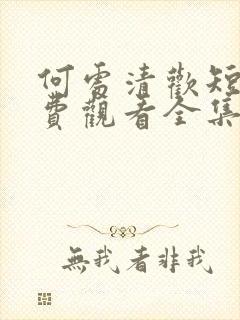 何處清歡短
費觀看全集
無我者非我